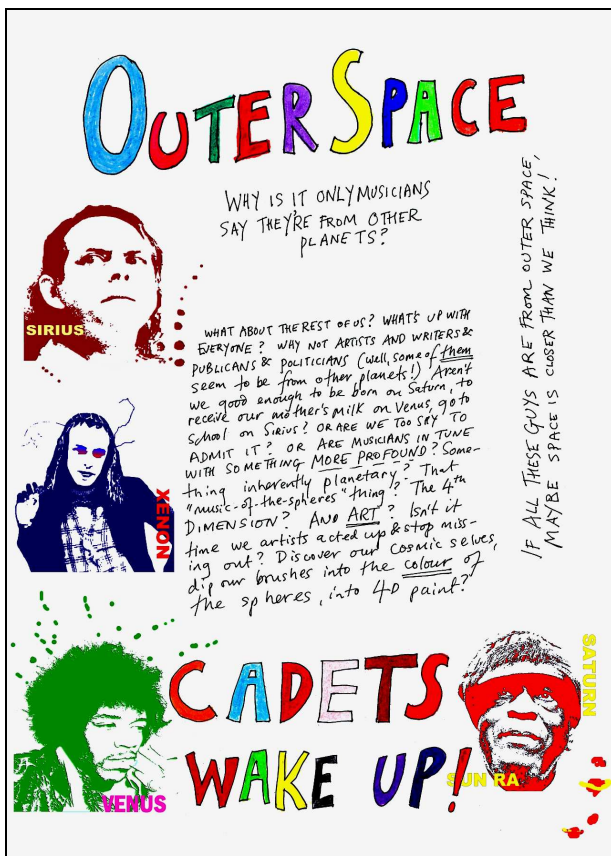 OUTER SPACE
WHY IS IT ONLY MUSICIANS
SAY THEY'RE FROM OTHER
PLANETS?
IF ALL THESE GUYS ARE FROM OUTER SPACE,
MAYBE SPACE IS CLOSER THAN WE THINK!
SIRIUS
WHAT ABOUT THE REST OF US? WHAT'S UP WITH
EVERYONE? WHY NOT ARTISTS AND WRITERS &
PUBLICANS & POLITICIANS (Well, some of them
seem to be from other planets!) Aren't
we good enough to be born on Saturn, to
receive our mother's milk on Venus, go to
school on Sirius? OR ARE WE TOO SHY TO
ADMIT IT? OR ARE MUSICIANS IN TUNE
WITH SOMETHING MORE PROFOUND? Some-
thing inherently planetary? That
"music-of-the-spheres" thing? The 4th
DIMENSION? AND ART? Isn't it
time we artists acted up & stop miss-
ing out? Discover our cosmic selves,
dip our brushes into the colour of
the spheres, into 4D paint?
XENON
CADETS
WAKE UP!
VENUS
SATURN
SUN RA